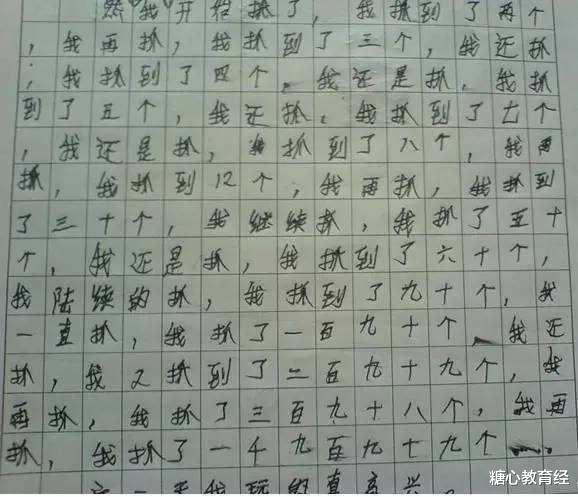 然我开始抓了，我抓到了两个
，我再抓，我抓到了三个，我还抓
，我抓到了四个，我还是抓，我抓
到了五个，我还抓，我抓到了七个
，我还是抓，我抓到了八个，我再
抓，我抓到12个，我再抓，我抓到
了三十个，我继续抓，我抓了五十
个，我还是抓，我抓到了六十个，
我陆续的抓，我抓到了九十个，我
一直抓，我抓了一百九十个，我还
抓，我又抓到了二百九十九个，我
再抓，我抓了三百九十八个，我再
抓，我抓了一千九百九十九个
我玩的真高兴
糖心教育经